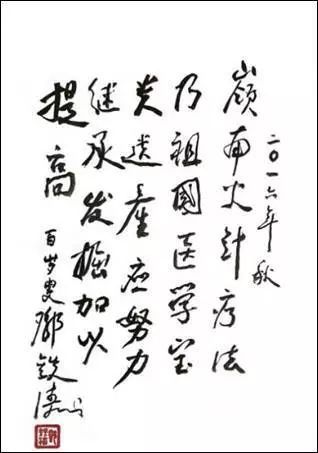 二〇一六年秋
嶺南火針疗法
乃祖國医学宝
贵遗產应努力
继承发掘加以
提高
百岁叟鄧鉄涛